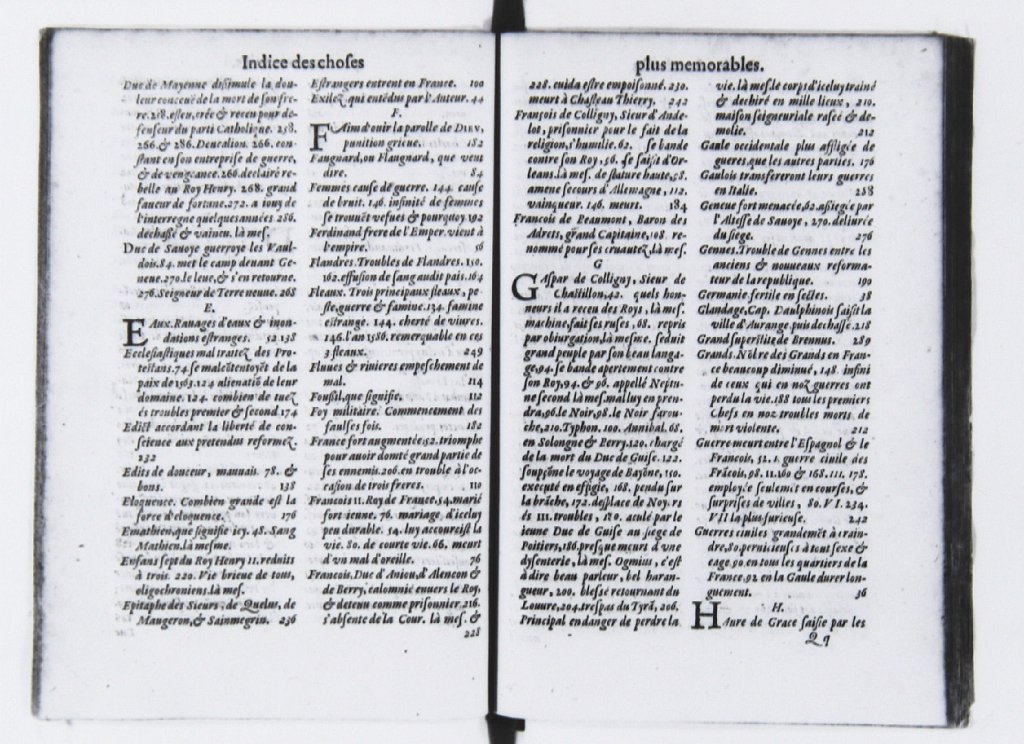 Indice des choses
Duc de Mayenne dissimule la dou-
leur conceuë de la mort de son fre-
re. 218. esleu, crée & receu pour de-
fenseur du parti Catholique. 258.
266. & 286. Deucalion. 266. con-
stant en son entreprise de guerre,
& de vengeance. 266. declairé re-
belle au Roy Henry. 268. grand
faueur de fortune. 272. a iouy de
l'interregne quelques années 286.
dechassé & vaincu. là mes.
Duc de Sauoye guerroye les Vaul-
dois. 84. met le camp deuant Ge-
neue. 270. le leue, & s'en retourne.
276. Seigneur de Terre neuue. 268
E.
EAux. Rauages d'eaux & inon-
dations estranges. 52 138
Ecclesiastiques mal traitez des Pro-
testans. 74. se malcötentoyët de la
paix de 1563. 124. alienatiö de leur
domaine. 124. combien de tuez
és troubles premier & second 174
Edict accordant la liberté de con-
science aux pretendus reformez
232
Edits de douceur, mauuais. 78. &
bons. 138
Eloquence. Combien grande est la
force d'eloquence. 176
Emathien, que signifie icy. 48. Sang
Mathien. là mesme.
Enfans sept du Roy Henry 11. reduits
à trois. 220. Vie brieue de tous,
oligochroniens. là mes.
Epitaphe des Sieurs, de Quelus, de
Maugeron, & Sainmegrin. 236
Estrangers entrent en France. 100
Exilez qui entēdus par l'Auteur. 44
F.
FAim d'ouir la parolle de DIEV,
punition grieue. 182
Fauguard, ou Flauguard, que veut
dire. 84
Femmes cause de guerre. 144. cause
de bruit. 146. infinité de femmes
se trouuēt vefues & pourquoy. 192
Ferdinand frere de l'Emper. vient à
l'empire. 56
Flandres. Troubles de Flandres. 150.
162. effusion de sang audit pais. 164
Fleaux. Trois principaux fleaux, pe-
ste, guerre & famine. 134. famine
estrange. 144. cherté de viures.
146. l'an 1586. remerquable en ces
3 fleaux. 249
Fluues & riuieres empeschement de
mal. 114
Foussil, que signifie. 112
Foy militaire. Commencement des
faulses fois. 182
France fort augmentée. 52. triomphe
pour auoir domté grand partie de
ses ennemis. 206. en trouble à l'oc-
casion de trois freres. 110
Francois 11. Roy de France. 54. marié
fort ieune. 76. mariage d'iceluy
peu durable. 54. luy accourcist la
vie. 80. de courte vie. 66. meurt
d'vn mal d'oreille. 76
Francois, Duc d'Aniou, d'Alencon &
de Berry, calomnié enuers le Roy,
& detenu comme prisonnier. 216.
s'absente de la Cour. là mes. &
228
plus memorables.
228. cuida estre empoisonné. 230.
meurt à Chasteau Thierry. 242
François de Colligny, Sieur d'Ande-
lot, prisonnier pour le fait de la
religion, s'humilie. 62. se bande
contre son Roy. 56. se saisit d'Or-
leans. là mes. de stature haute, 98.
amene secours d'Allemagne, 112.
vainqueur. 146. meurt. 184
Francois de Beaumont, Baron des
Adrets, grand Capitaine, 108. re-
nommé pour ses cruautez. là mes.
G
GAspar de Colligny, Sieur de
Chastillon, 42. quels hon-
neurs il a receu des Roys, là mes.
machine, fait ses ruses, 68. repris
par obiurgation, là mesme. seduit
grand peuple par son beau langa-
ge, 94. se bande apertement contre
son Roy, 94. & 96. appellé Neptu-
ne second là mes. malluy en pren-
dra, 96. le Noir, 98. le Noir farou-
che, 210. Typhon. 100. Annibal. 68.
en Solongne & Berry. 120. chargé
de la mort du Duc de Guise. 122.
soupçöne le voyage de Bayöne, 150.
executé en effigie, 168. pendu sur
la brâche, 172. desplace de Noy. rs
és 111. troubles, 180. aculé par le
ieune Duc de Guise au siege de
Poitiers, 186. presque meurs d'vne
dysenterie, là mes. Ogmius, c'est
à dire beau parleur, bel haran-
gueur, 200. blessé retournant du
Louure, 204. trespas du Tyrā, 206.
Principal en danger de perdre la
vie. là mes. le corps d'iceluy trainé
& dechiré en mille lieux, 210.
maison seigneuriale rasée & de-
molie. 212
Gaule occidentale plus affligée de
gueres, que les autres parties. 176
Gaulois transfereront leurs guerres
en Italie. 288
Geneue fort menacée, 62. assiegée par
l'Altesse de Sauoye, 270. deliurée
du siege. 276
Gennes. Trouble de Gennes entre les
anciens & nouueaux reforma-
teur de la republique. 190
Germanie fertile en sectes. 38
Glandage, Cap. Daulphinois saisit la
ville d'Aurange, puis dechassé. 218
Grand superstite de Brennus. 289
Grands. Nöbre des Grands en Fran-
ce beaucoup diminué, 148. infini
de ceux qui en noz guerres ont
perdu la vie. 188 tous les premiers
Chefs en noz troubles morts de
mort violente. 212
Guerre meurt entre l'Espagnol & le
Francois, 52. 1. guerre ciuile des
Frācois, 98. 11. 160 & 168. 111. 178.
employée seulemēt en courses, &
surprises de villes, 80. VI. 234.
VII la plus furieuse. 242
Guerres ciuiles grandemēt à crain-
dre, 80. pernicieuses à tous sexe &
eage. 90. en tous les quartiers de la
France, 92 en la Gaule durer lon-
guement. 36
H.
HAure de Grace saisie par les
Qq